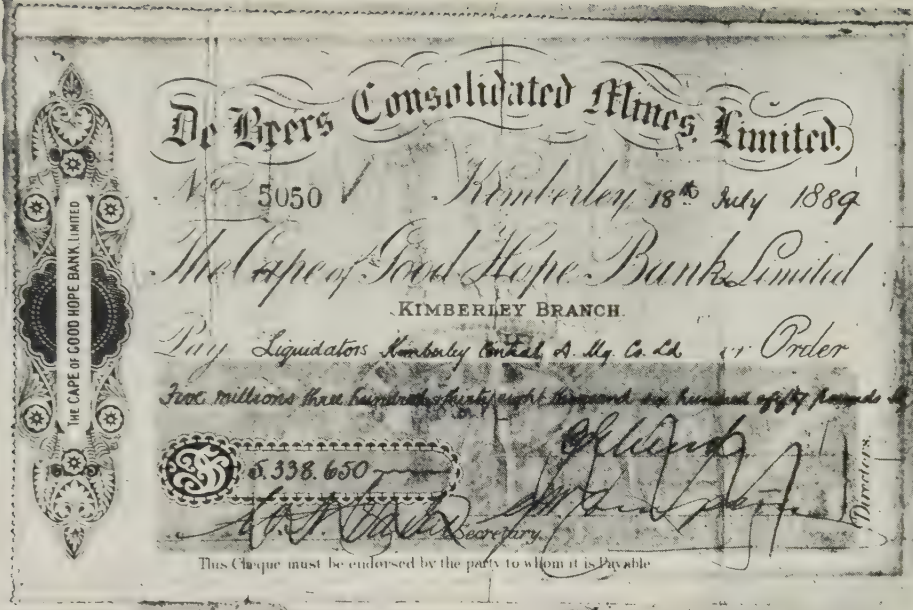 De Beers Consolidated Mines, Limited.
No 5050 Kimberley 18th July 1889
The Cape of Good Hope Bank Limited
KIMBERLEY BRANCH.
Pay Liquidators Kimberley Central D. Mg. Co. Ld or Order
Five millions three hundred & thirty eight thousand six hundred & fifty pounds
£ 5.338.650
Directors.
Secretary.
This Cheque must be endorsed by the party to whom it is Payable
THE CAPE OF GOOD HOPE BANK, LIMITED